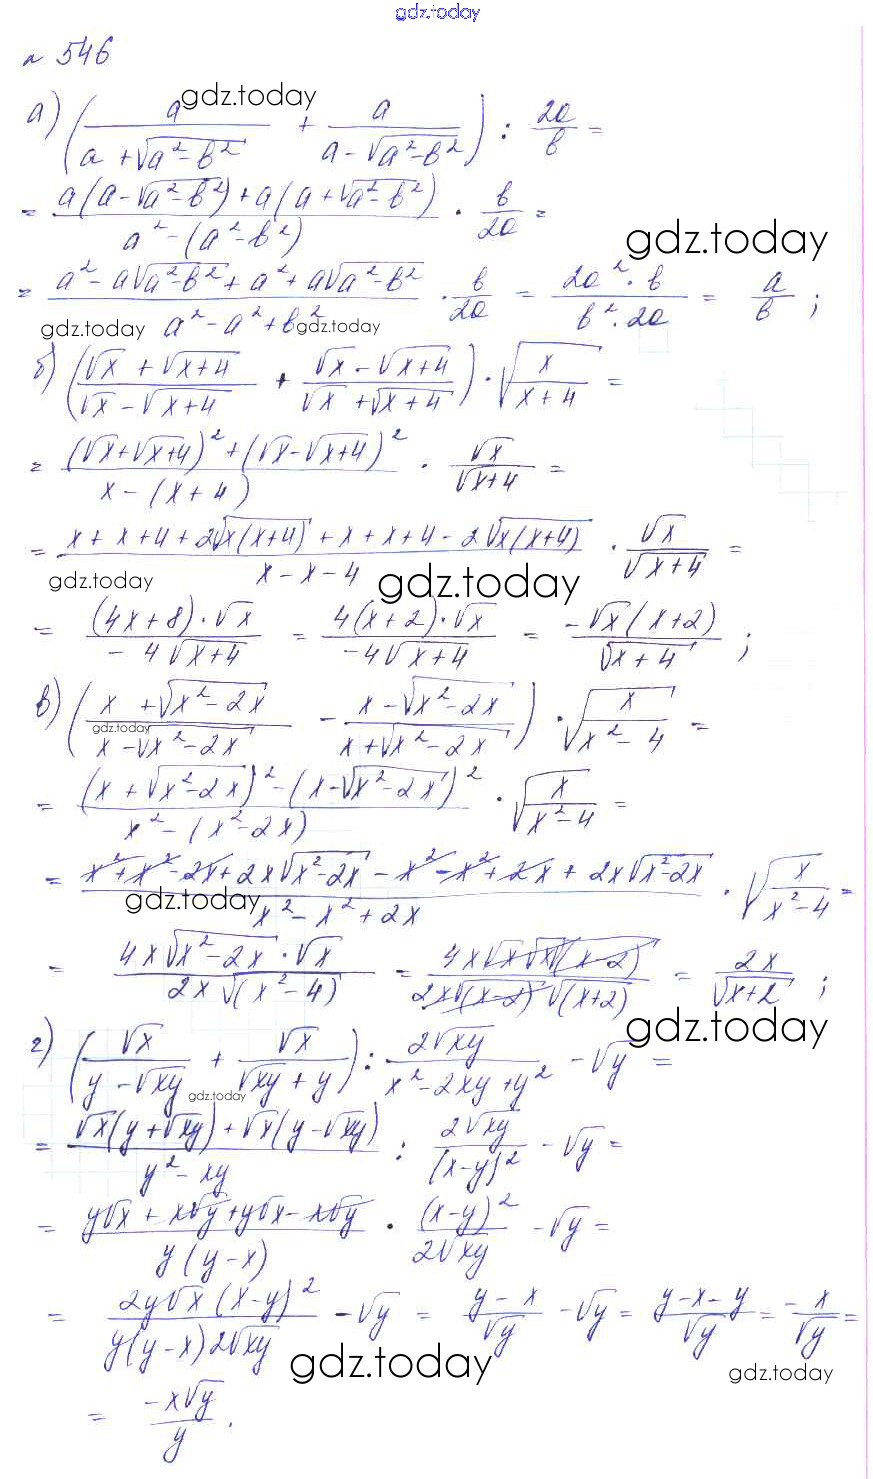 gdz.today
№ 546
а) (a/(a + √(a² - b²)) + a/(a - √(a² - b²))) : 2a/b =
gdz.today
= (a(a - √(a² - b²)) + a(a + √(a² - b²)))/(a² - (a² - b²)) · b/2a =
gdz.today
= (a² - a√(a² - b²) + a² + a√(a² - b²))/(a² - a² + b²) · b/2a = (2a² · b)/(b² · 2a) = a/b ;
gdz.today gdz.today
б) ((√x + √(x+4))/(√x - √(x+4)) + (√x - √(x+4))/(√x + √(x+4))) · √(x/(x+4)) =
= ((√x + √(x+4))² + (√x - √(x+4))²)/(x - (x+4)) · √x/√(x+4) =
= (x + x + 4 + 2√(x(x+4)) + x + x + 4 - 2√(x(x+4)))/(x - x - 4) · √x/√(x+4) =
gdz.today gdz.today
= ((4x + 8) · √x)/(-4√(x+4)) = (4(x + 2) · √x)/(-4√(x+4)) = (-√x(x+2))/√(x+4) ;
в) ((x + √(x² - 2x))/(x - √(x² - 2x)) - (x - √(x² - 2x))/(x + √(x² - 2x))) · √(x/(x² - 4)) =
gdz.today
= ((x + √(x² - 2x))² - (x - √(x² - 2x))²)/(x² - (x² - 2x)) · √(x/(x² - 4)) =
= (x² + x² - 2x + 2x√(x² - 2x) - x² - x² + 2x + 2x√(x² - 2x))/(x² - x² + 2x) · √(x/(x² - 4)) =
gdz.today
= (4x√(x² - 2x) · √x)/(2x√(x² - 4)) = (4x√x√x√(x-2))/(2x√(x-2)√(x+2)) = 2x/√(x+2) ;
gdz.today
г) (√x/(y - √xy) + √x/(√xy + y)) : 2√xy/(x² - 2xy + y²) - √y =
gdz.today
= (√x(y + √xy) + √x(y - √xy))/(y² - xy) : 2√xy/(x-y)² - √y =
= (y√x + x√y + y√x - x√y)/(y(y-x)) · (x-y)²/2√xy - √y =
= (2y√x(x-y)²)/(y(y-x)2√xy) - √y = (y-x)/√y - √y = (y-x-y)/√y = -x/√y =
gdz.today gdz.today
= -x√y/y .